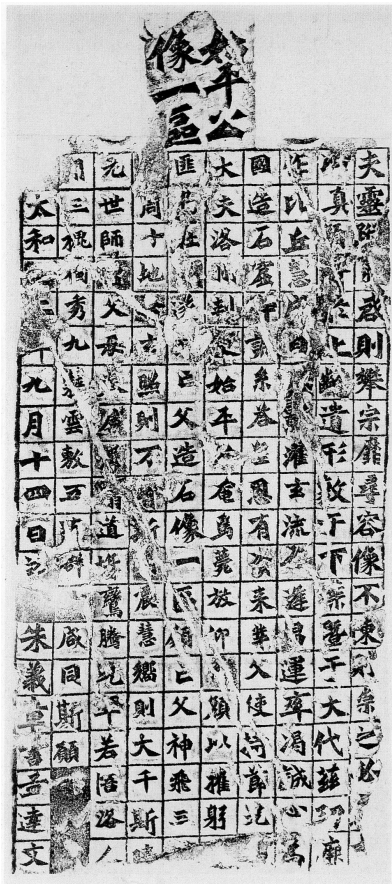 始平公
像一區
夫靈啟則攀宗靡尋容像不陳則崇之必
真於上齡遺形敷于下葉暨于大代茲功厥
作比丘慧自濯玄流邀昌運率渴誠心為
國造石窟系答皇恩有資來業父使持節光
大夫洛州刺史始平公奄焉薨放仰顏以摧躬
匪烏在亡父造石像一區願亡父神飛三
周十地玄照則万斯震慧嚮則大千斯
元世師父母道場鸞騰兜率若悟洛人
間三槐秀九棘雲敷五群咸同斯願
太和九月十四日訖朱義章書孟達文